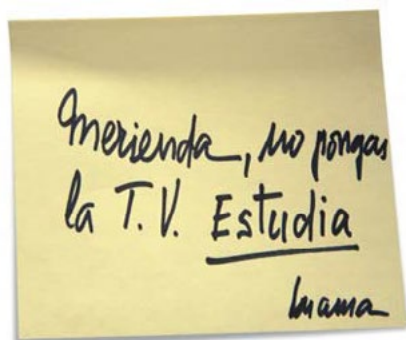 Merienda, no pongas
la T.V. Estudia
mama